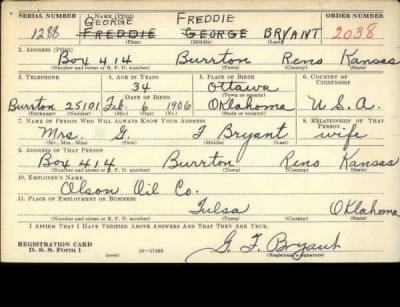 SERIAL NUMBER 1. NAME (Print) ORDER NUMBER
GEORGE FREDDIE
1288 FREDDIE GEORGE BRYANT 2038
(First) (Middle) (Last)
2. ADDRESS (Print)
Box 414 Burrton Reno Kansas
(Number and street or R. F. D. number) (Town) (County) (State)
3. TELEPHONE 4. AGE IN YEARS 5. PLACE OF BIRTH 6. COUNTRY OF CITIZENSHIP
34 Ottawa
DATE OF BIRTH (Town or county)
Burrton 25101 Feb. 6 1906 Oklahoma U.S.A.
(Exchange) (Number) (Mo.) (Day) (Yr.) (State or country)
7. NAME OF PERSON WHO WILL ALWAYS KNOW YOUR ADDRESS 8. RELATIONSHIP OF THAT PERSON
Mrs. G. F Bryant wife
(Mr., Mrs., Miss) (First) (Middle) (Last)
9. ADDRESS OF THAT PERSON
Box 414 Burrton Reno Kansas
(Number and street or R. F. D. number) (Town) (County) (State)
10. EMPLOYER'S NAME
Olson Oil Co.
11. PLACE OF EMPLOYMENT OR BUSINESS
Tulsa Oklahoma
(Number and street or R. F. D. number) (Town) (County) (State)
I AFFIRM THAT I HAVE VERIFIED ABOVE ANSWERS AND THAT THEY ARE TRUE.
REGISTRATION CARD
D. S. S. Form 1 (over) G. F. Bryant
(Registrant's signature)